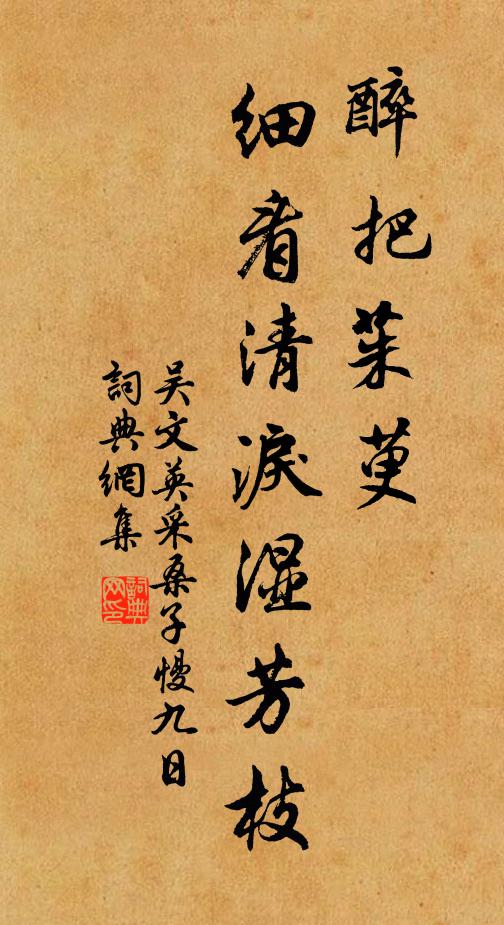 醉把茱萸
細看清淚濕芳枝
吴文英采桑子慢九日
詞典網集
詞典
网印